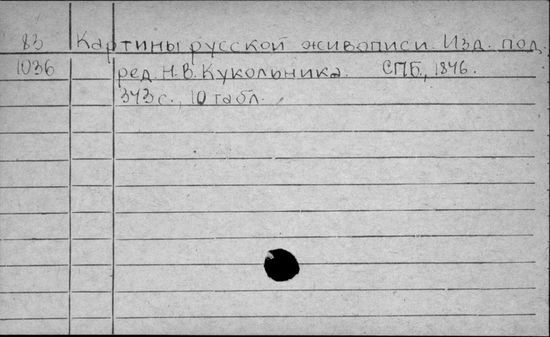 83 Картины русской живописи. Изд. под.
1036 ред. Н.В. Кукольника. СПБ, 1846.
343 с., 10 табл.